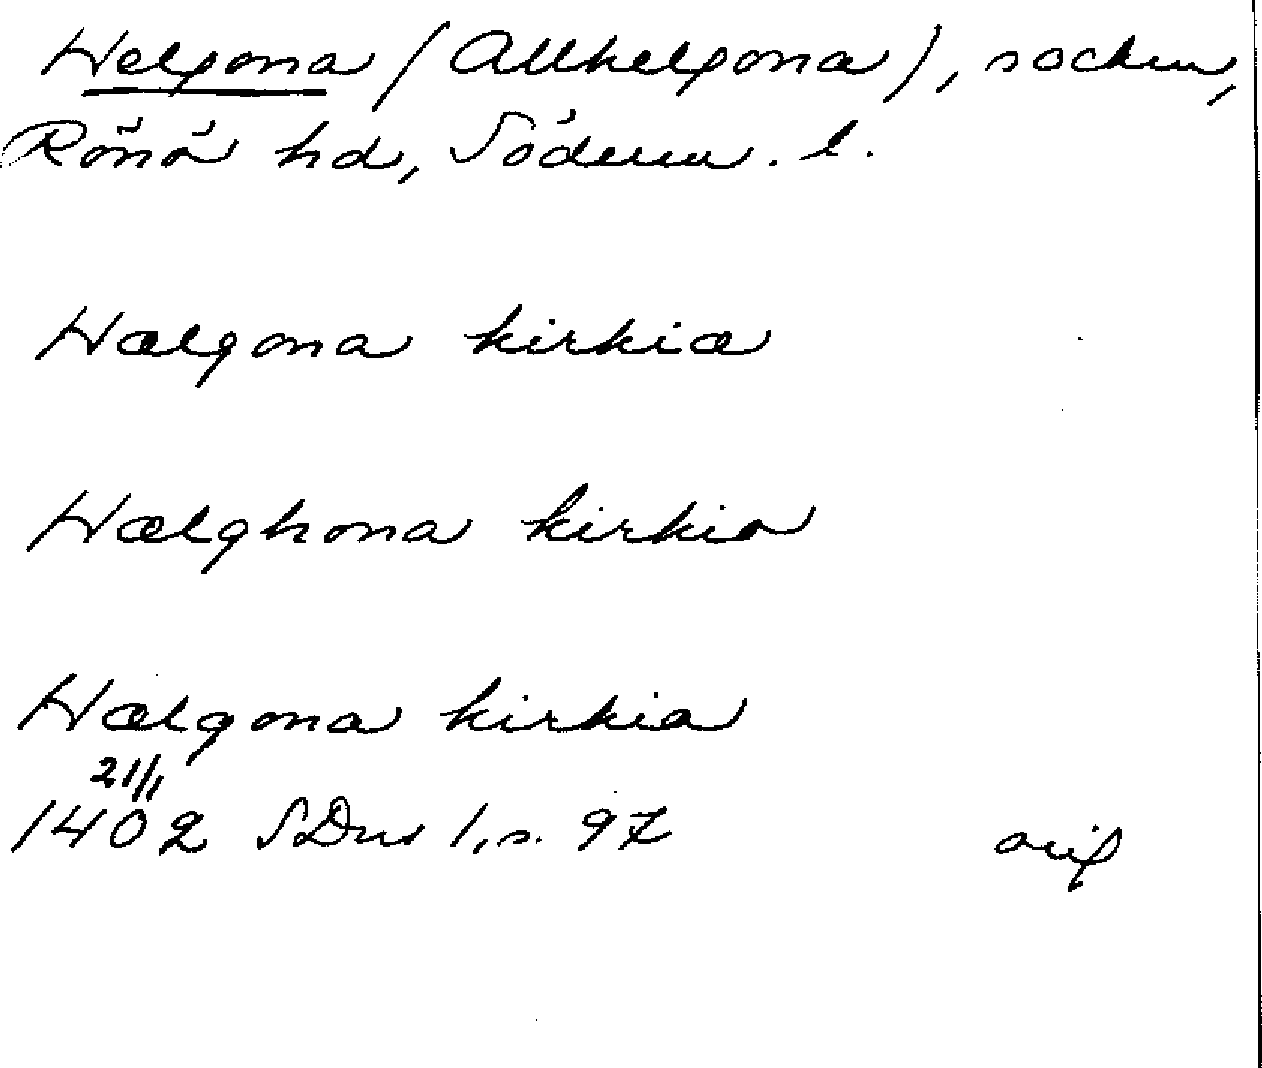 Helgona (Allhelgona), socken,
Rönö hd, Söderm. l.
Hælgona kirkiæ
Hælghona kirkio
Hælgona kirkia
21/1
1402 SDns 1, s. 97 orig